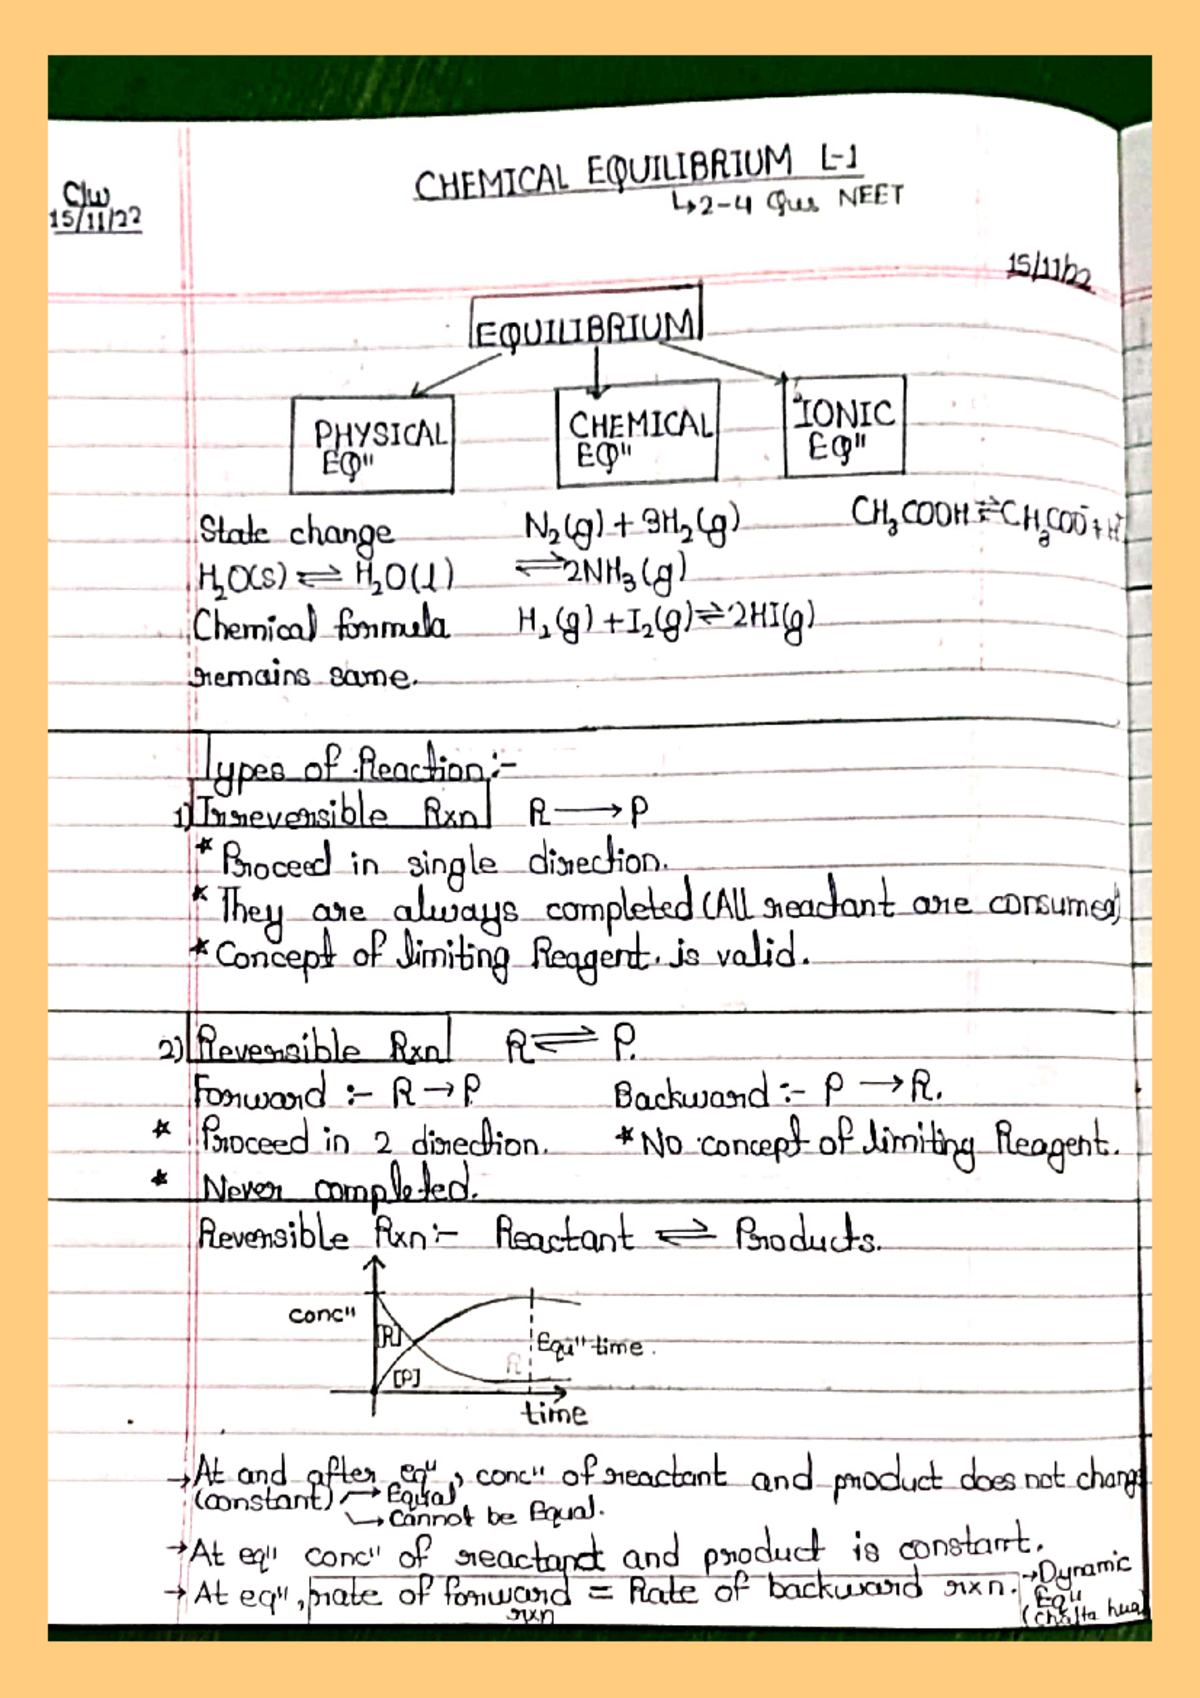 CHEMICAL EQUILIBRIUM L-1
C/w
15/11/22
↳2-4 Ques NEET
15/11/22
EQUILIBRIUM
PHYSICAL
EQⁿ
CHEMICAL
EQⁿ
IONIC
EQⁿ
State change
H₂O(s) ⇌ H₂O(l)
Chemical formula
remains same.
N₂(g) + 3H₂(g)
⇌ 2NH₃(g)
H₂(g) + I₂(g) ⇌ 2HI(g)
CH₃COOH ⇌ CH₃COO⁻ + H⁺
Types of Reaction :-
1) Irreversible Rxn R ⟶ P
* Proceed in single direction.
* They are always completed (All reactant are consumed)
* Concept of limiting Reagent. is valid.
2) Reversible Rxn R ⇌ P.
Forward :- R → P. Backward :- P → R.
* Proceed in 2 direction. * No concept of limiting Reagent.
* Never completed.
Reversible Rxn :- Reactant ⇌ Products.
concⁿ
[R]
[P]
R
Equⁿ time.
time
→ At and after eqⁿ, concⁿ of reactant and product does not change
(constant) → Equal
↳ cannot be Equal.
→ At eqⁿ concⁿ of reactant and product is constant.
→ At eqⁿ, rate of forward = Rate of backward rxn. → Dynamic
rxn
Equⁿ
(chalta hua)